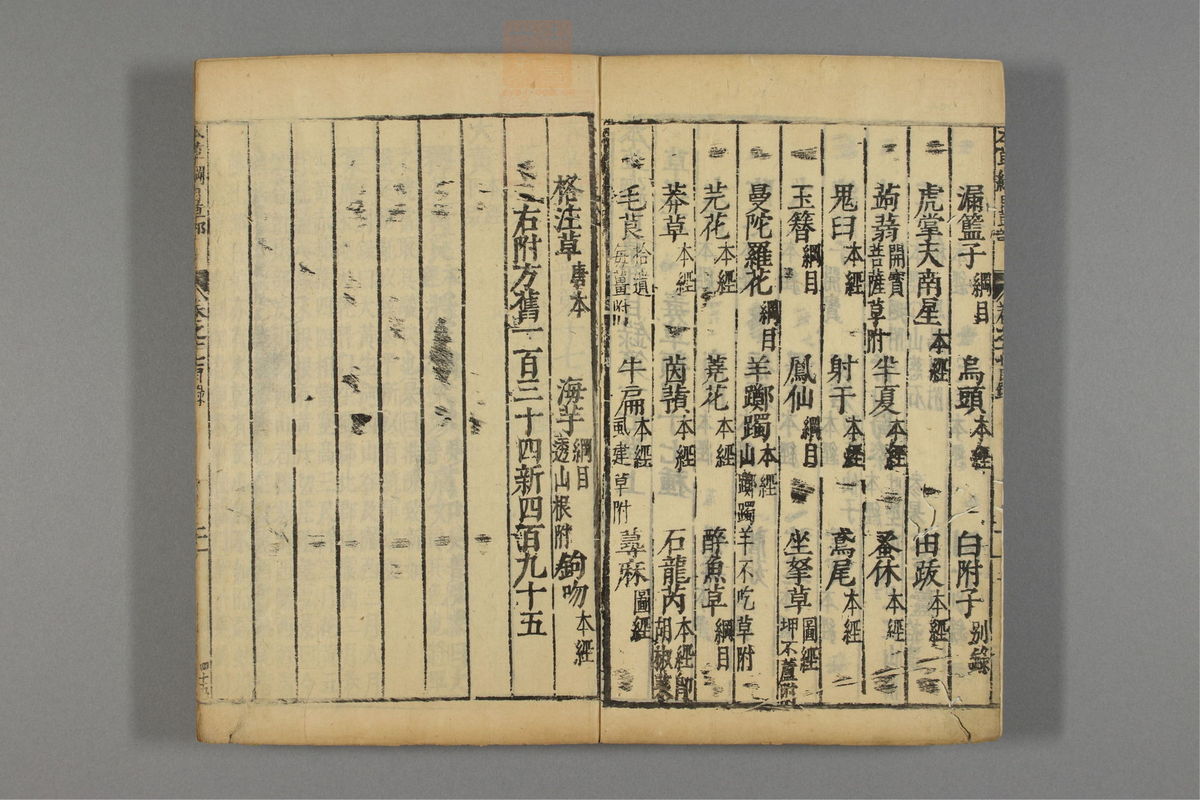 漏籃子 綱目 烏頭 本經 白附子 别錄
虎掌天南星 本經 由跋 本經
蒟蒻 開寶 菩薩草附 半夏 本經 蚤休 本經
鬼臼 本經 射干 本經 鳶尾 本經
玉簪 綱目 鳳仙 綱目 坐拏草 圖經 押不蘆附
曼陀羅花 綱目 羊躑躅 本經 山躑躅 羊不吃草附
芫花 本經 蕘花 本經 醉魚草 綱目
莽草 本經 茵蕷 本經 石龍芮 本經 即胡椒菜
毛茛 拾遺 海薑附 牛扁 本經 虱建草附 蕁麻 圖經
格注草 唐本 海芋 綱目 透山根附 鉤吻 本經
右附方舊一百三十四新四百九十五